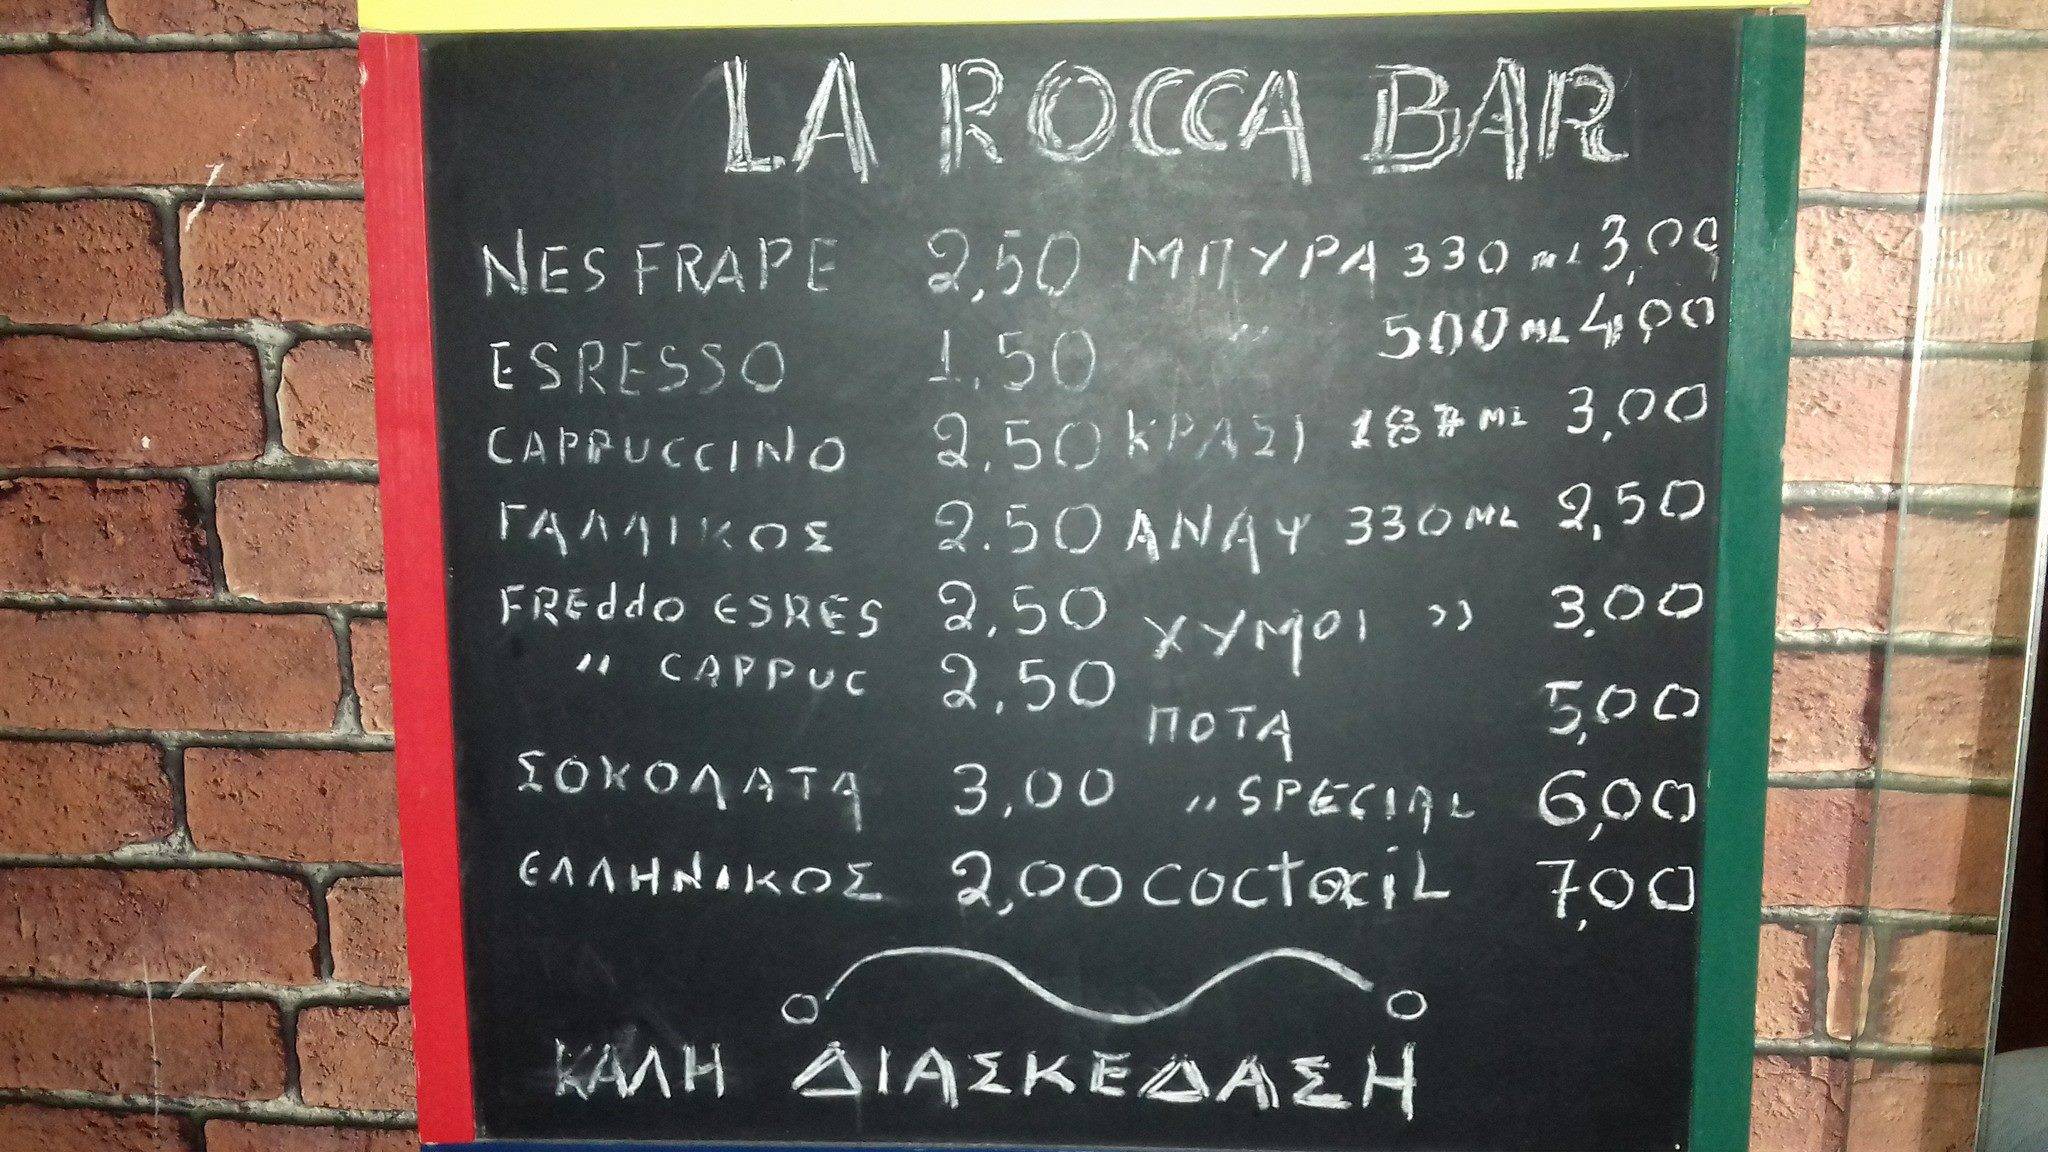 LA ROCCA BAR
NES FRAPE 2,50
ESRESSO 1.50
CAPPUCCINO 2.50
ΓΑΛΛΙΚΟΣ 2.50
FREddO ESRES 2,50
" CAPPUC 2,50
ΣΟΚΟΛΑΤΑ 3,00
ΕΛΛΗΝΙΚΟΣ 2,00
ΜΠΥΡΑ 330 ML 3,00
" 500 ML 4,00
ΚΡΑΣΙ 187 ML 3,00
ΑΝΑΨ 330 ML 2,50
ΧΥΜΟΙ " 3,00
ΠΟΤΑ 5,00
" SPECIAL 6,00
COCTαiL 7,00
ΚΑΛΗ ΔΙΑΣΚΕΔΑΣΗ